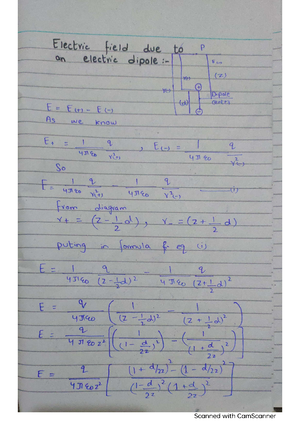 Electric field due to
an electric dipole :-
P
(z)
Dipole
center
(d)
E = E(+) - E(-)
As we know
E+ = 1/4πε0 q/r²(+) , E(-) = 1/4πε0 q/r²(-)
So
E = 1/4πε0 q/r²(+) - 1/4πε0 q/r²(-) —— (i)
From diagram
r+ = (z - 1/2 d) , r- = (z + 1/2 d)
puting in formula & eq (i)
E = 1/4πε0 q/(z - 1/2 d)² - 1/4πε0 q/(z + 1/2 d)²
E = q/4πε0 (1/(z - 1/2 d)² - 1/(z + 1/2 d)²)
E = q/4πε0z² [(1/(1 - d/2z)²) - (1/(1 + d/2z)²)]
E = q/4πε0z² [((1 + d/2z)² - (1 - d/2z)²)/((1 - d/2z)² (1 + d/2z)²)]
Scanned with CamScanner